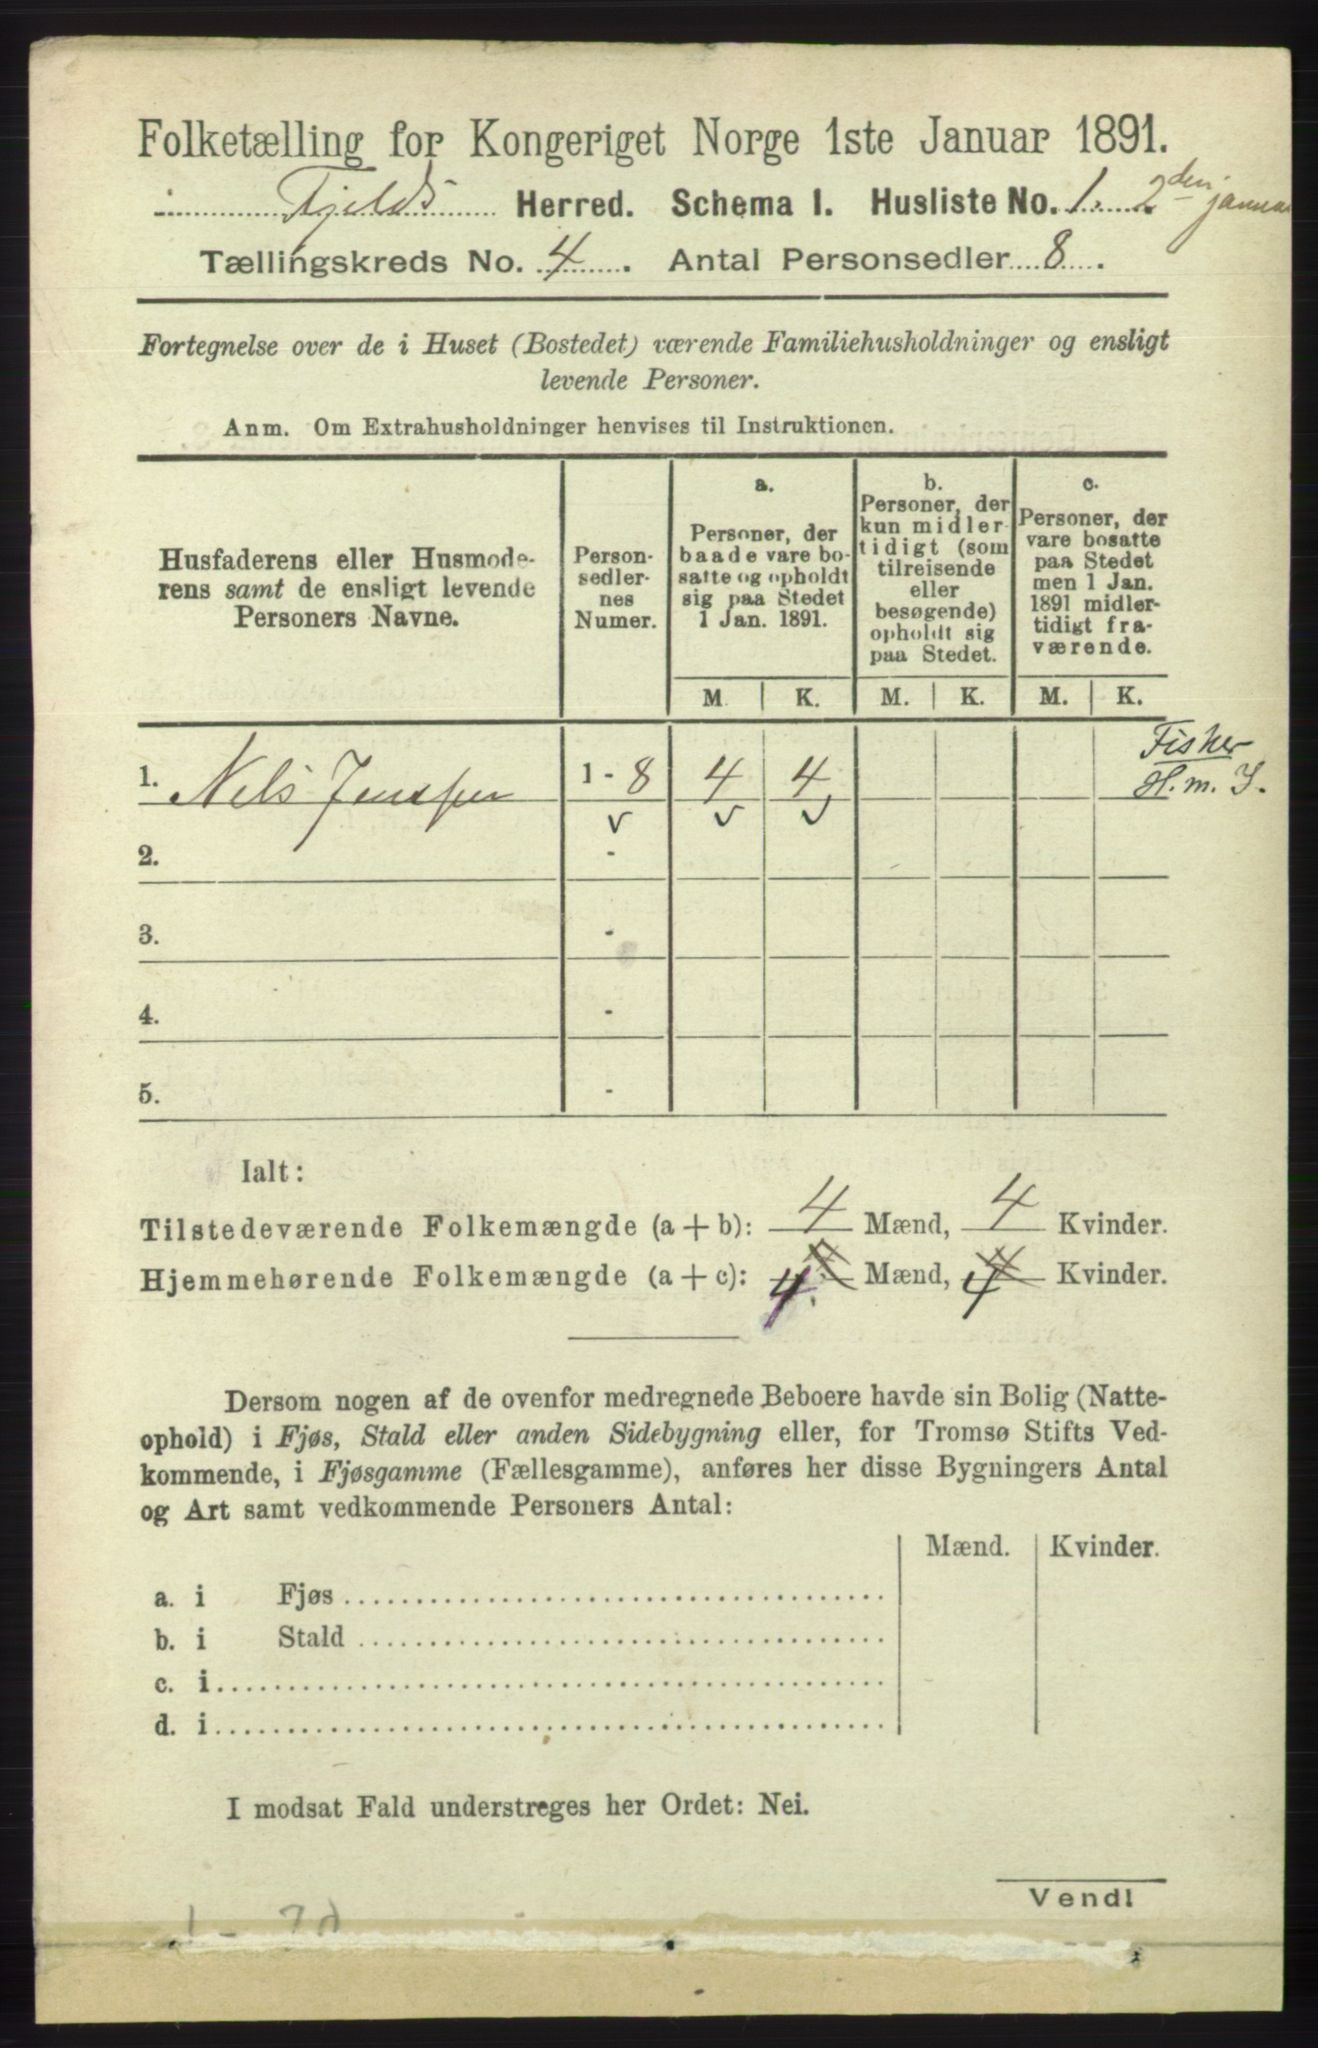 Folketælling for Kongeriget Norge 1ste Januar 1891.
i Fjelds Herred. Schema 1. Husliste No. 1. 2den januar
Tællingskreds No. 4. Antal Personsedler 8.
Fortegnelse over de i Huset (Bostedet) værende Familiehusholdninger og ensligt
levende Personer.
Anm. Om Extrahusholdninger henvises til Instruktionen.
Husfaderens eller Husmode-
rens samt de ensligt levende
Personers Navne.
Person-
sedler-
nes
Numer.
a.
Personer, der
baade vare bo-
satte og opholdt
sig paa Stedet
1 Jan. 1891.
b.
Personer, der
kun midler-
tidigt (som
tilreisende
eller
besøgende)
opholdt sig
paa Stedet.
c.
Personer, der
vare bosatte
paa Stedet
men 1 Jan.
1891 midler-
tidigt fra-
værende.
M. K. M. K. M. K.
Fisker
1. Nels 1 - 8 4 4 H. m. J.
2. -
3. -
4. -
5. -
Ialt:
Tilstedeværende Folkemængde (a + b): 4 Mænd, 4 Kvinder.
Hjemmehørende Folkemængde (a + c): 4. Mænd, 4 Kvinder.
Dersom nogen af de ovenfor medregnede Beboere havde sin Bolig (Natte-
ophold) i Fjøs, Stald eller anden Sidebygning eller, for Tromsø Stifts Ved-
kommende, i Fjøsgamme (Fællesgamme), anføres her disse Bygningers Antal
og Art samt vedkommende Personers Antal:
Mænd. Kvinder.
a. i Fjøs
b. i Stald
c. i
d. i
I modsat Fald understreges her Ordet: Nei.
Vend!